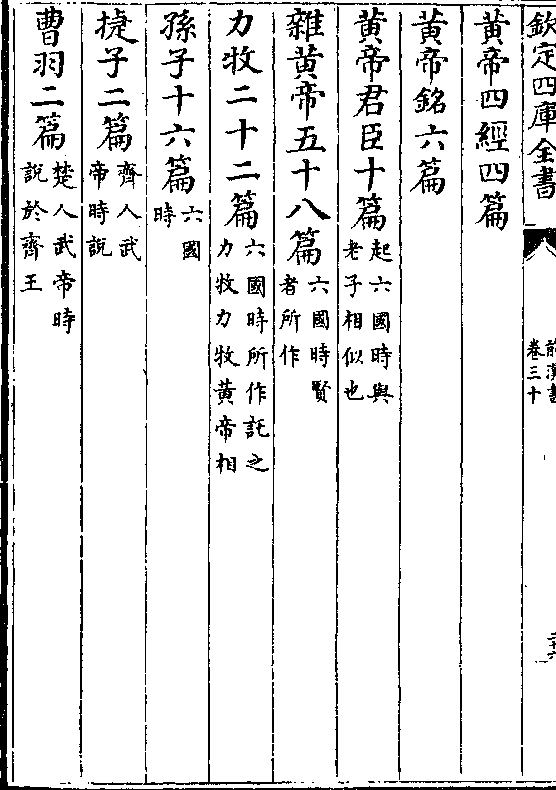 欽定四庫全書
前漢書
卷三十
二十六
黃帝四經四篇
黃帝銘六篇
黃帝君臣十篇起六國時與老子相似也
雜黃帝五十八篇六國時賢者所作
力牧二十二篇六國時所作託之力牧力牧黃帝相
孫子十六篇六國時
捷子二篇齊人武帝時說
曹羽二篇楚人武帝時說於齊王